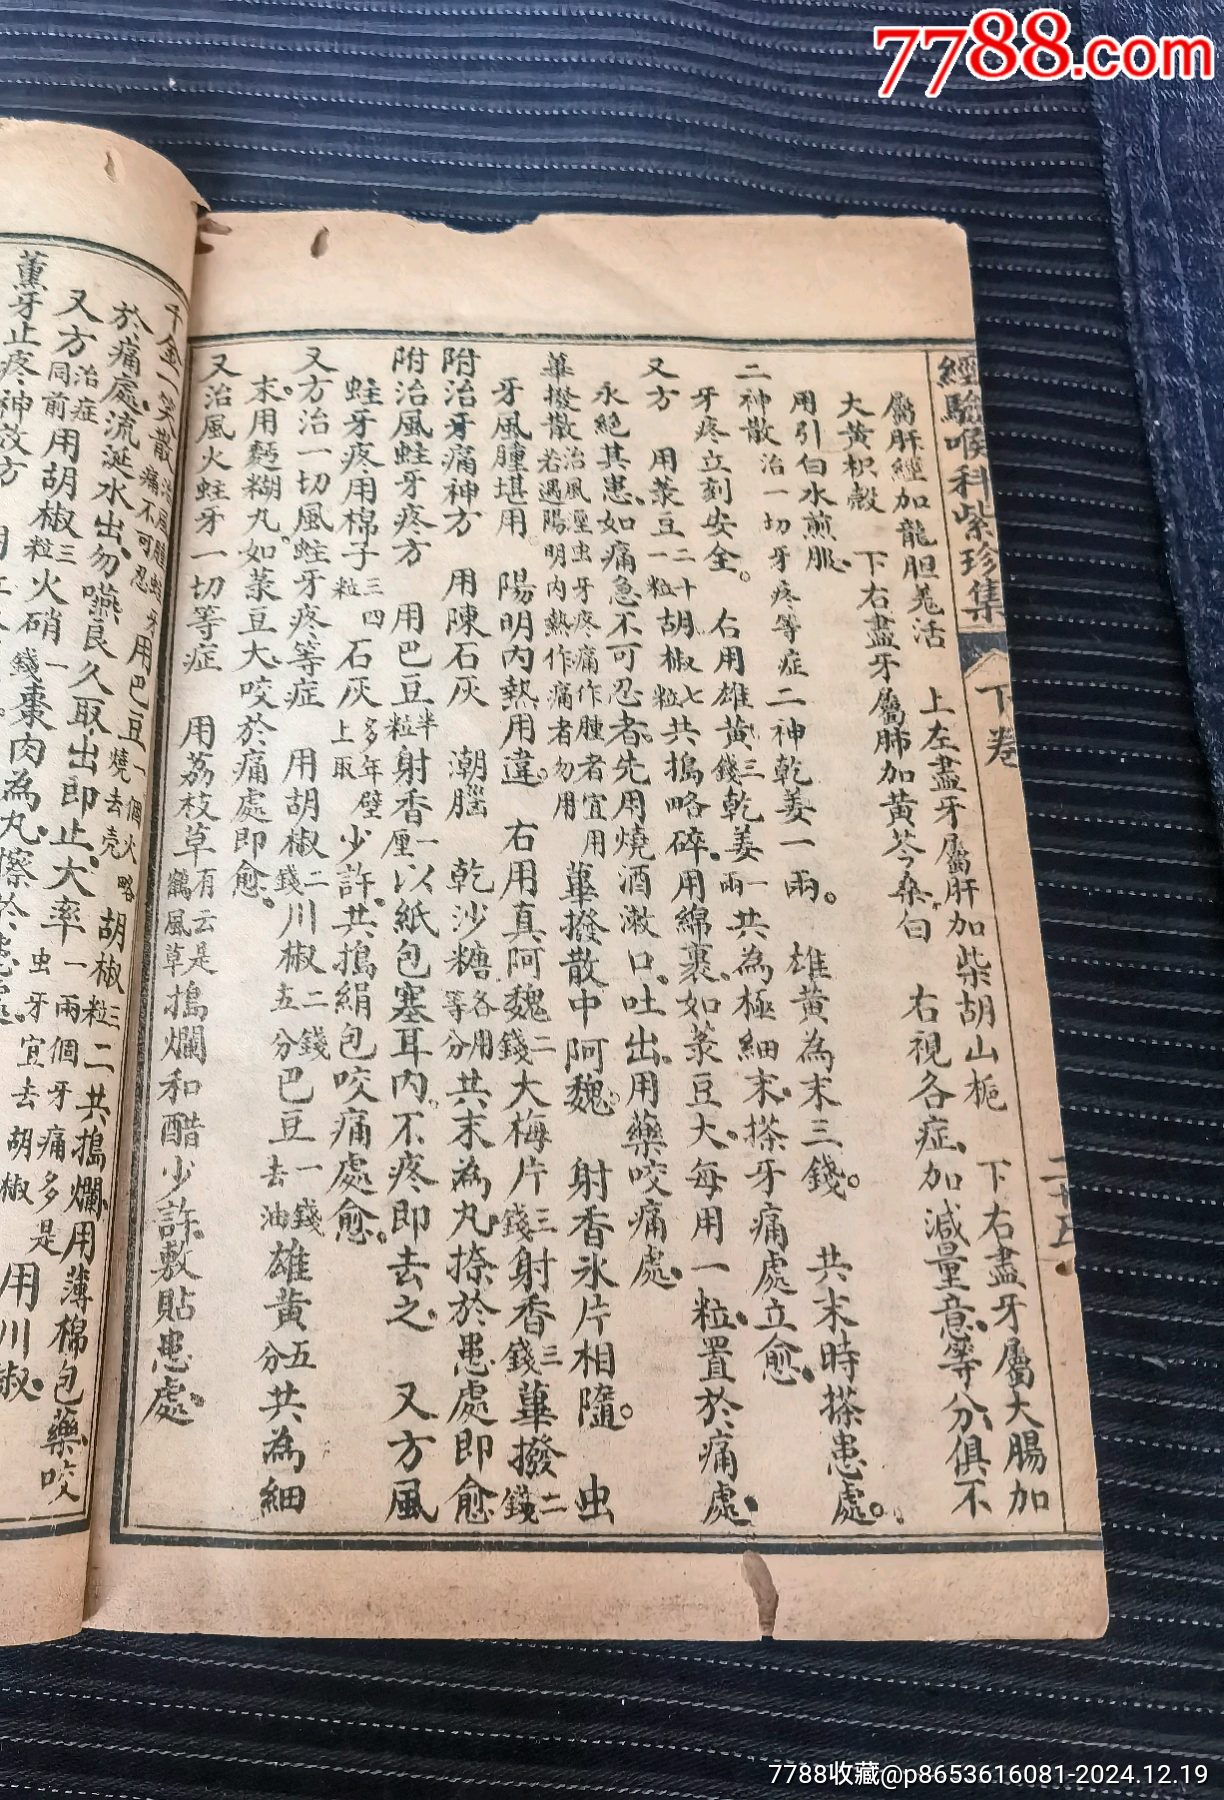 7788.com
經驗喉科紫珍集 下卷 二十五
上左盡牙屬肝加柴胡山梔 下右盡牙屬大腸加
屬肝經加龍胆羌活
大黃枳殼 下右盡牙屬肺加黃芩桑白 右視各症加減量意等分俱不
用引白水煎服
二神散治一切牙疼等症二神乾姜一兩。 雄黃為末三錢。 共末時搽患處。
牙疼立刻安全。 右用雄黃三錢乾姜一兩共為極細末搽牙痛處立愈
又方 用菉豆二十一粒胡椒七粒共搗略碎用綿裹如菉豆大每用一粒置於痛處
永絕其患如痛急不可忍者先用燒酒漱口吐出用藥咬痛處
蓽撥散治風壓虫牙疼痛作腫者宜用若遇陽明內熱作痛者勿用 蓽撥散中阿魏 射香氷片相隨。 虫
牙風腫堪用 陽明內熱用違。 右用真阿魏二錢大梅片三錢射香三錢蓽撥二錢
附治牙痛神方 用陳石灰 潮腦 乾沙糖各用等分共末為丸搽於患處即愈
附治風蛀牙疼方 用巴豆半粒射香一厘以紙包塞耳內不疼即去之 又方風
蛀牙疼用棉子三四粒 石灰多年壁上取 少許共搗絹包咬痛處愈
又方治一切風蛀牙疼等症 用胡椒二錢川椒二錢五分巴豆一錢去油雄黃五分共為細
末用麪糊丸如菉豆大咬於痛處即愈
又治風火蛀牙一切等症 用荔枝草有云是鶴風草搗爛和醋少許敷貼患處
千金一笑散 痛不可忍 用巴豆一個火略燒去壳 胡椒三粒二共搗爛用薄棉包藥咬
於痛處流涎水出勿嚥良久取出即止大率一兩個牙痛多是
又方治症同前用胡椒三粒火硝一錢棗肉為丸擦於患處 虫牙宜去胡椒 用川椒
薰牙止疼神效方
7788收藏@p8653616081-2024.12.19